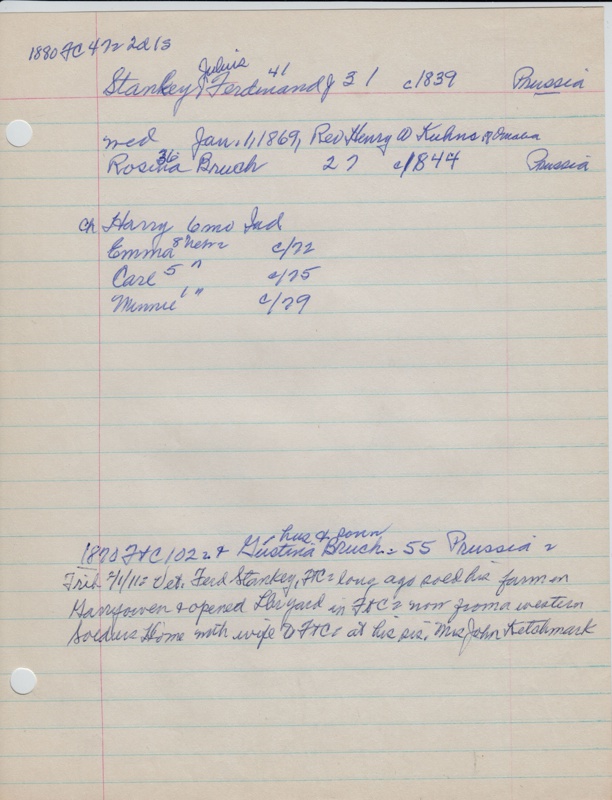 1880 FC 472 2d 13
Julius 41
Stankey, Ferdinand J 31 c1839 Prussia
med Jan. 1, 1869, Rev Henry W Kuhns, of Omaha
36
Rosina Bruch 27 c/844 Prussia
ch Harry 6mo Ind
Emma 8 Nebr c/72
Carl 5 " c/75
Minnie 1 " c/79
hus &
1870 F&C 102 & Gustina Bruch 55 Prussia
Trib Vet. Ferd Stankey, F&C long ago sold his farm on
Garryowen & opened yard in F&C now from a western
Soldiers Home with wife F&C at his sis, Mrs John Ketchmark